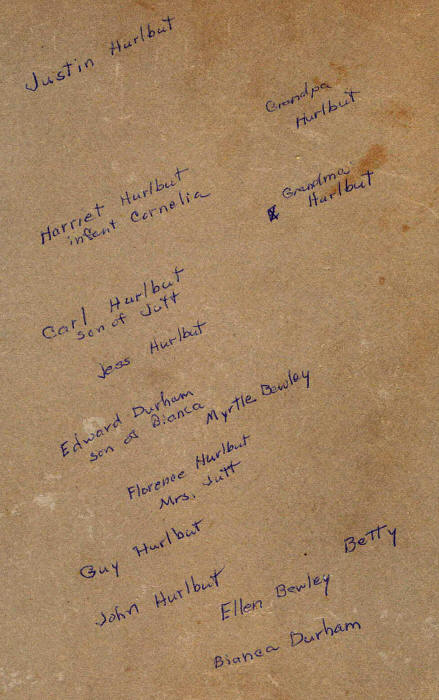 Justin Hurlbut
Grandpa
Hurlbut
Harriet Hurlbut
infant Cornelia
Grandma
Hurlbut
Carl Hurlbut
son of Jutt
Jess Hurlbut
Edward Durham
son of Bianca
Myrtle Bewley
Florence Hurlbut
Mrs. Jutt
Guy Hurlbut
John Hurlbut
Betty
Ellen Bewley
Bianca Durham